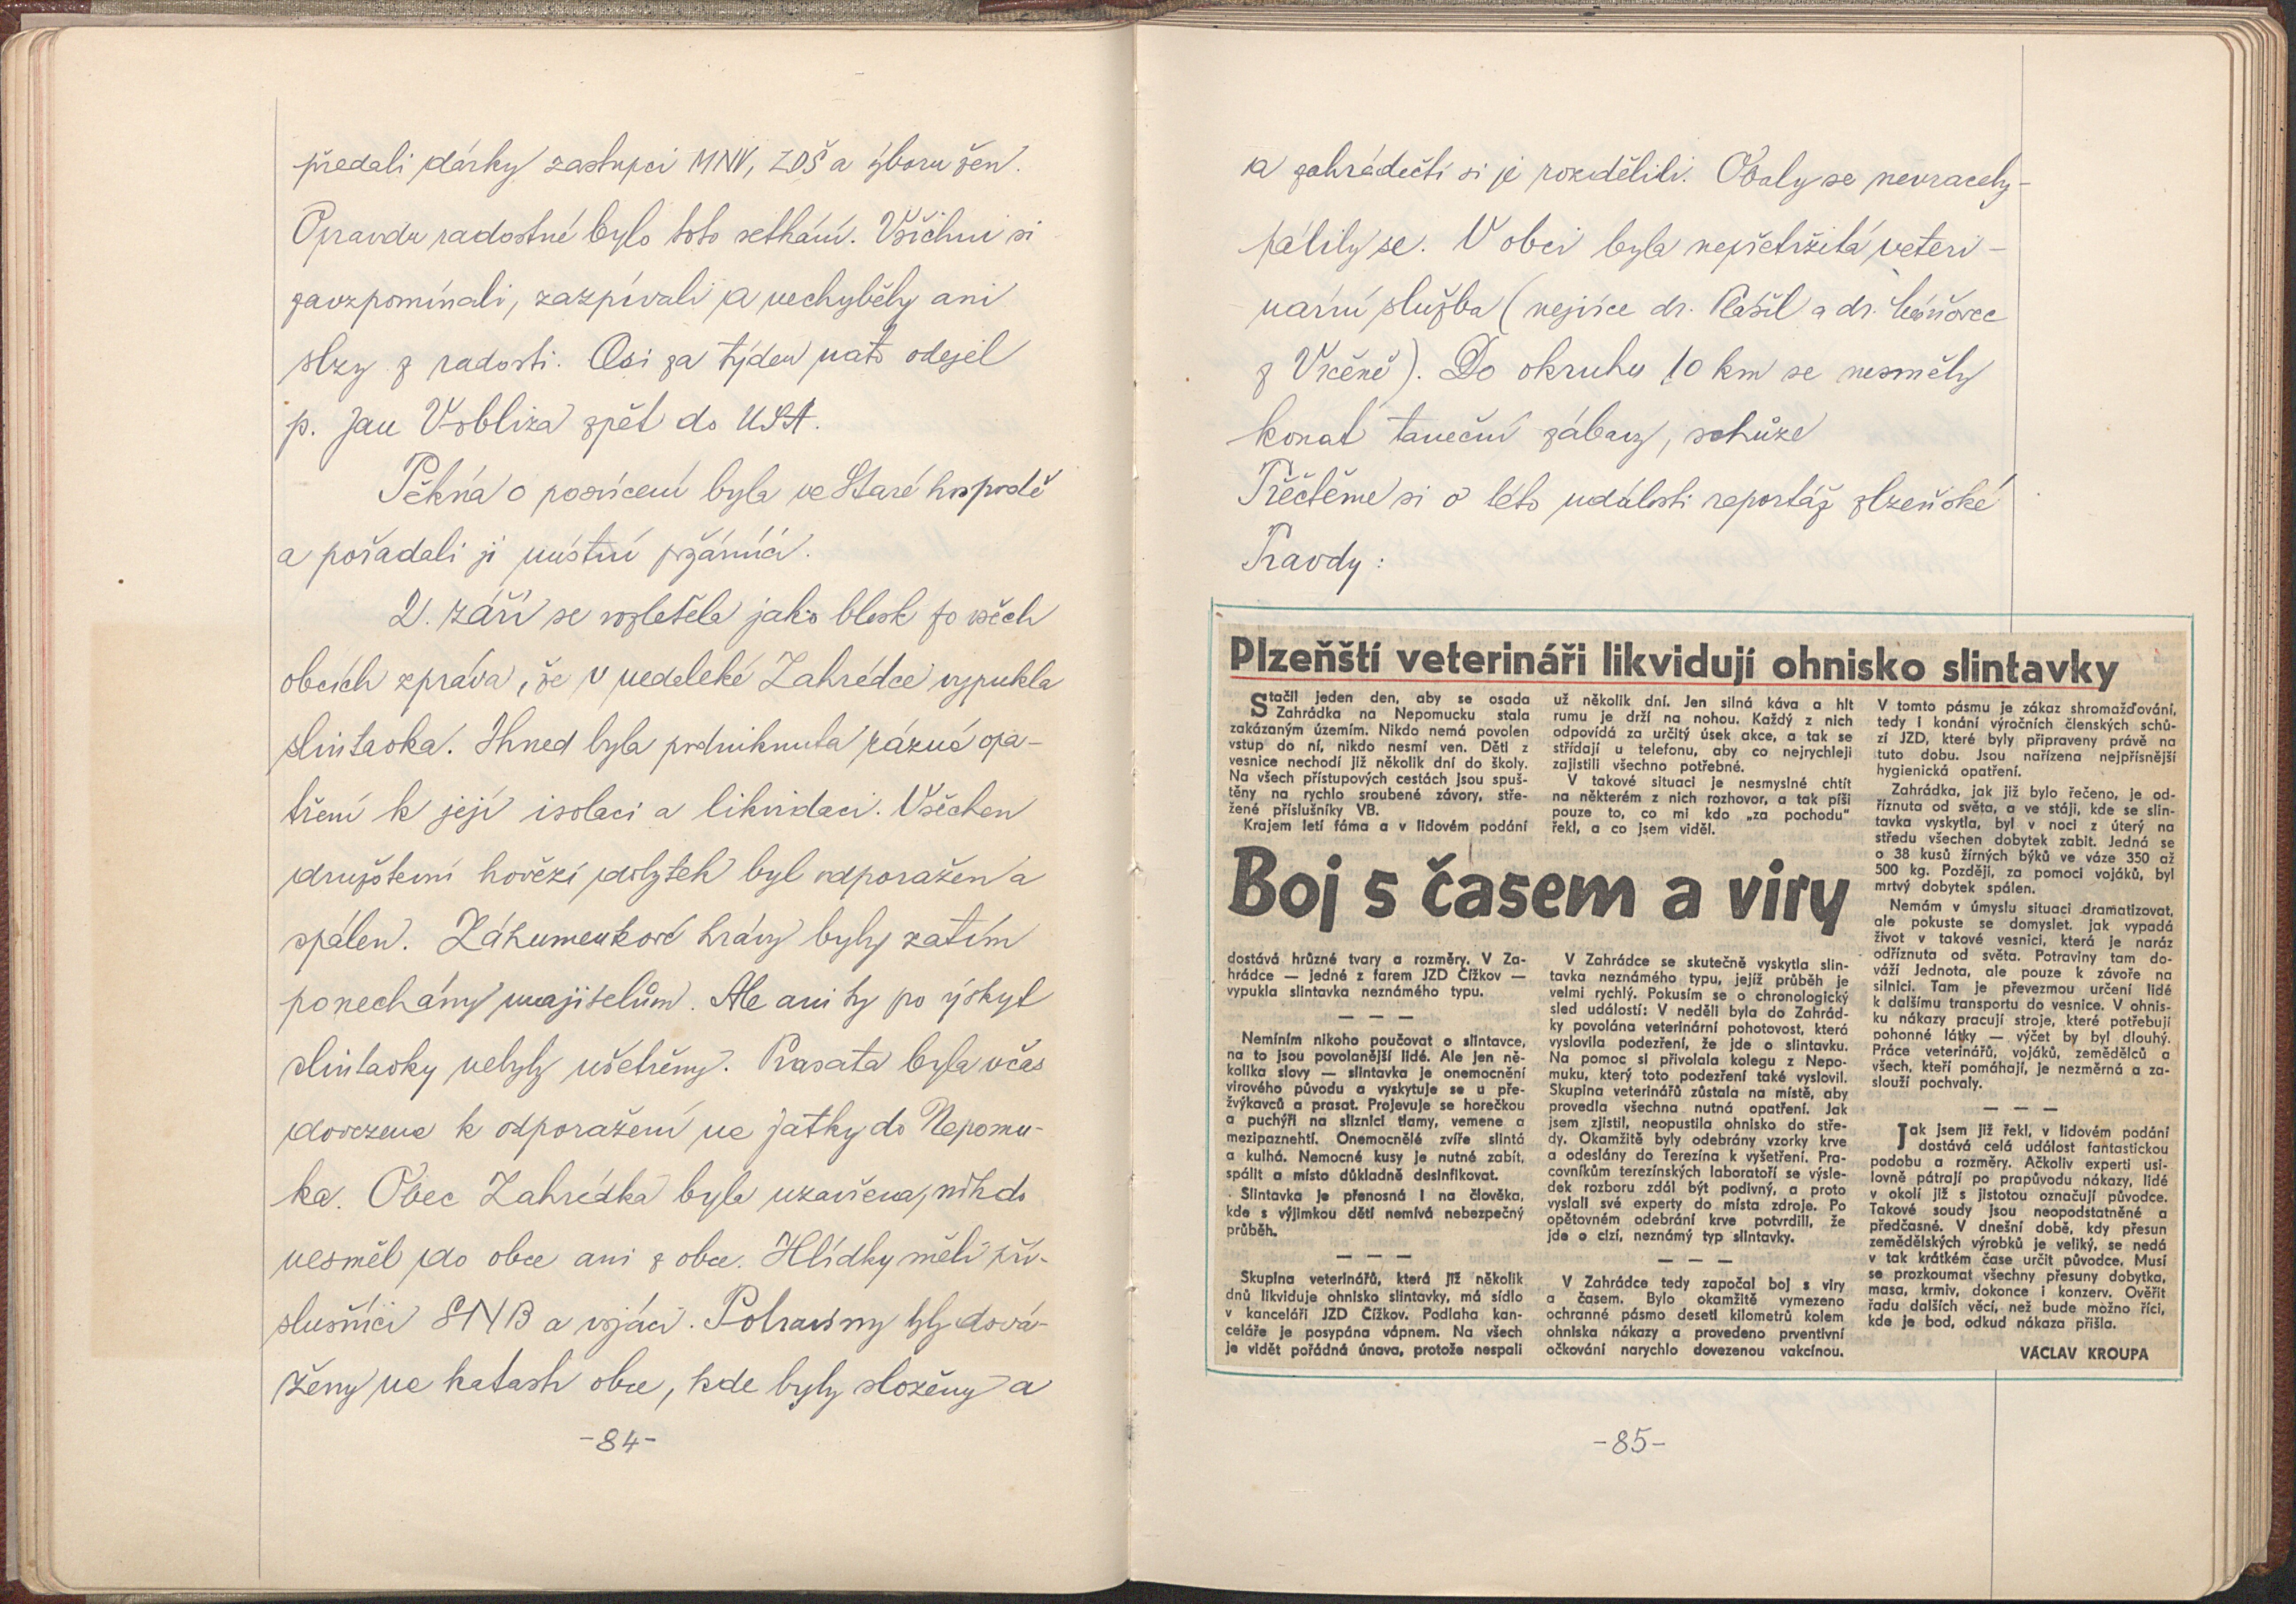 předali dárky zastupci MNV, ZDŠ a výboru žen.
Opravdu radostné bylo toto setkání. Všichni si
zavzpomínali, zazpívali a nechyběly ani
slzy z radosti. Asi za týden nato odejel
p. Jan Vobliza zpět do USA.
Pěkná o posvícení byla ve Staré hospodě
a pořadali ji místní požárníci.
2. září se rozletěla jako blesk po všech
obcích zpráva, že v nedaleké Zahrádce vypukla
slintavka. Ihned byla podniknuta rázná opa-
tření k její isolaci a likvidaci. Všechen
družstevní hovězí dobytek byl odporažen a
spálen. Záhumenkové krávy byly zatím
ponechány majitelům. Ale ani ty po výskyt
slintavky nebyly ušetřeny. Prasata byla včas
dovezena k odporažení na jatky do Nepomu-
ka. Obec Zahrádka byla uzavřena, nikdo
nesměl do obce ani z obce. Hlídky měli pří-
slušníci SNB a vojáci. Potraviny byly dová-
ženy na katastr obce, kde byly složeny a
-84-
a zahrádečtí si je rozdělili. Obaly se nevracely-
pálily se. V obci byla nepřetržitá veteri-
nární služba (nejvíce dr. Plášil a dr.
z Vrčeně). Do okruhu 10 km se nesměly
konat taneční zábavy, schůze
Přečtěme si o této události reportáž plzeňské
Pravdy:
Plzeňští veterináři likvidují ohnisko slintavky
Stačil jeden den, aby se osada
Zahrádka na Nepomucku stala
zakázaným územím. Nikdo nemá povolen
vstup do ní, nikdo nesmí ven. Děti z
vesnice nechodí již několik dní do školy.
Na všech přístupových cestách jsou spuš-
těny na rychlo sroubené závory, stře-
žené příslušníky VB.
Krajem letí fáma a v lidovém podání
Boj s časem a viry
dostává hrůzné tvary a rozměry. V Za-
hrádce — jedné z farem JZD Čížkov —
vypukla slintavka neznámého typu.
— — —
Nemíním nikoho poučovat o slintavce,
na to jsou povolanější lidé. Ale jen ně-
kolika slovy — slintavka je onemocnění
virového původu a vyskytuje se u pře-
žvýkavců a prasat. Projevuje se horečkou
a puchýři na sliznici tlamy, vemene a
mezipaznehtí. Onemocnělé zvíře slintá
a kulhá. Nemocné kusy je nutné zabít,
spálit a místo důkladně desinfikovat.
Slintavka je přenosná i na člověka,
kde s výjimkou dětí nemívá nebezpečný
průběh.
— — —
Skupina veterinářů, která již několik
dnů likviduje ohnisko slintavky, má sídlo
v kanceláři JZD Čížkov. Podlaha kan-
celáře je posypána vápnem. Na všech
je vidět pořádná únava, protože nespali
už několik dní. Jen silná káva a hlt
rumu je drží na nohou. Každý z nich
odpovídá za určitý úsek akce, a tak se
střídají u telefonu, aby co nejrychleji
zajistili všechno potřebné.
V takové situaci je nesmyslné chtít
na některém z nich rozhovor, a tak píši
pouze to, co mi kdo „za pochodu"
řekl, a co jsem viděl.
V Zahrádce se skutečně vyskytla slin-
tavka neznámého typu, jejíž průběh je
velmi rychlý. Pokusím se o chronologický
sled událostí: V neděli byla do Zahrád-
ky povolána veterinární pohotovost, která
vyslovila podezření, že jde o slintavku.
Na pomoc si přivolala kolegu z Nepo-
muku, který toto podezření také vyslovil.
Skupina veterinářů zůstala na místě, aby
provedla všechna nutná opatření. Jak
jsem zjistil, neopustila ohnisko do stře-
dy. Okamžitě byly odebrány vzorky krve
a odeslány do Terezína k vyšetření. Pra-
covníkům terezínských laboratoří se výsle-
dek rozboru zdál být podivný, a proto
vyslali své experty do místa zdroje. Po
opětovném odebrání krve potvrdili, že
jde o cizí, neznámý typ slintavky.
— — —
V Zahrádce tedy započal boj s viry
a časem. Bylo okamžitě vymezeno
ochranné pásmo deseti kilometrů kolem
ohniska nákazy a provedeno prventivní
očkování narychlo dovezenou vakcínou.
V tomto pásmu je zákaz shromažďování,
tedy i konání výročních členských schů-
zí JZD, které byly připraveny právě na
tuto dobu. Jsou nařízena nejpřísnější
hygienická opatření.
Zahrádka, jak již bylo řečeno, je od-
říznuta od světa, a ve stáji, kde se slin-
tavka vyskytla, byl v noci z úterý na
středu všechen dobytek zabit. Jedná se
o 38 kusů žírných býků ve váze 350 až
500 kg. Později, za pomoci vojáků, byl
mrtvý dobytek spálen.
Nemám v úmyslu situaci dramatizovat,
ale pokuste se domyslet, jak vypadá
život v takové vesnici, která je naráz
odříznuta od světa. Potraviny tam do-
váží Jednota, ale pouze k závoře na
silnici. Tam je převezmou určení lidé
k dalšímu transportu do vesnice. V ohnis-
ku nákazy pracují stroje, které potřebují
pohonné látky — výčet by byl dlouhý.
Práce veterinářů, vojáků, zemědělců a
všech, kteří pomáhají, je nezměrná a za-
slouží pochvaly.
— — —
Jak jsem již řekl, v lidovém podání
dostává celá událost fantastickou
podobu a rozměry. Ačkoliv experti usi-
lovně pátrají po prapůvodu nákazy, lidé
v okolí již s jistotou označují původce.
Takové soudy jsou neopodstatněné a
předčasné. V dnešní době, kdy přesun
zemědělských výrobků je veliký, se nedá
v tak krátkém čase určit původce. Musí
se prozkoumat všechny přesuny dobytka,
masa, krmiv, dokonce i konzerv. Ověřit
řadu dalších věcí, než bude možno říci,
kde je bod, odkud nákaza přišla.
VÁCLAV KROUPA
-85-